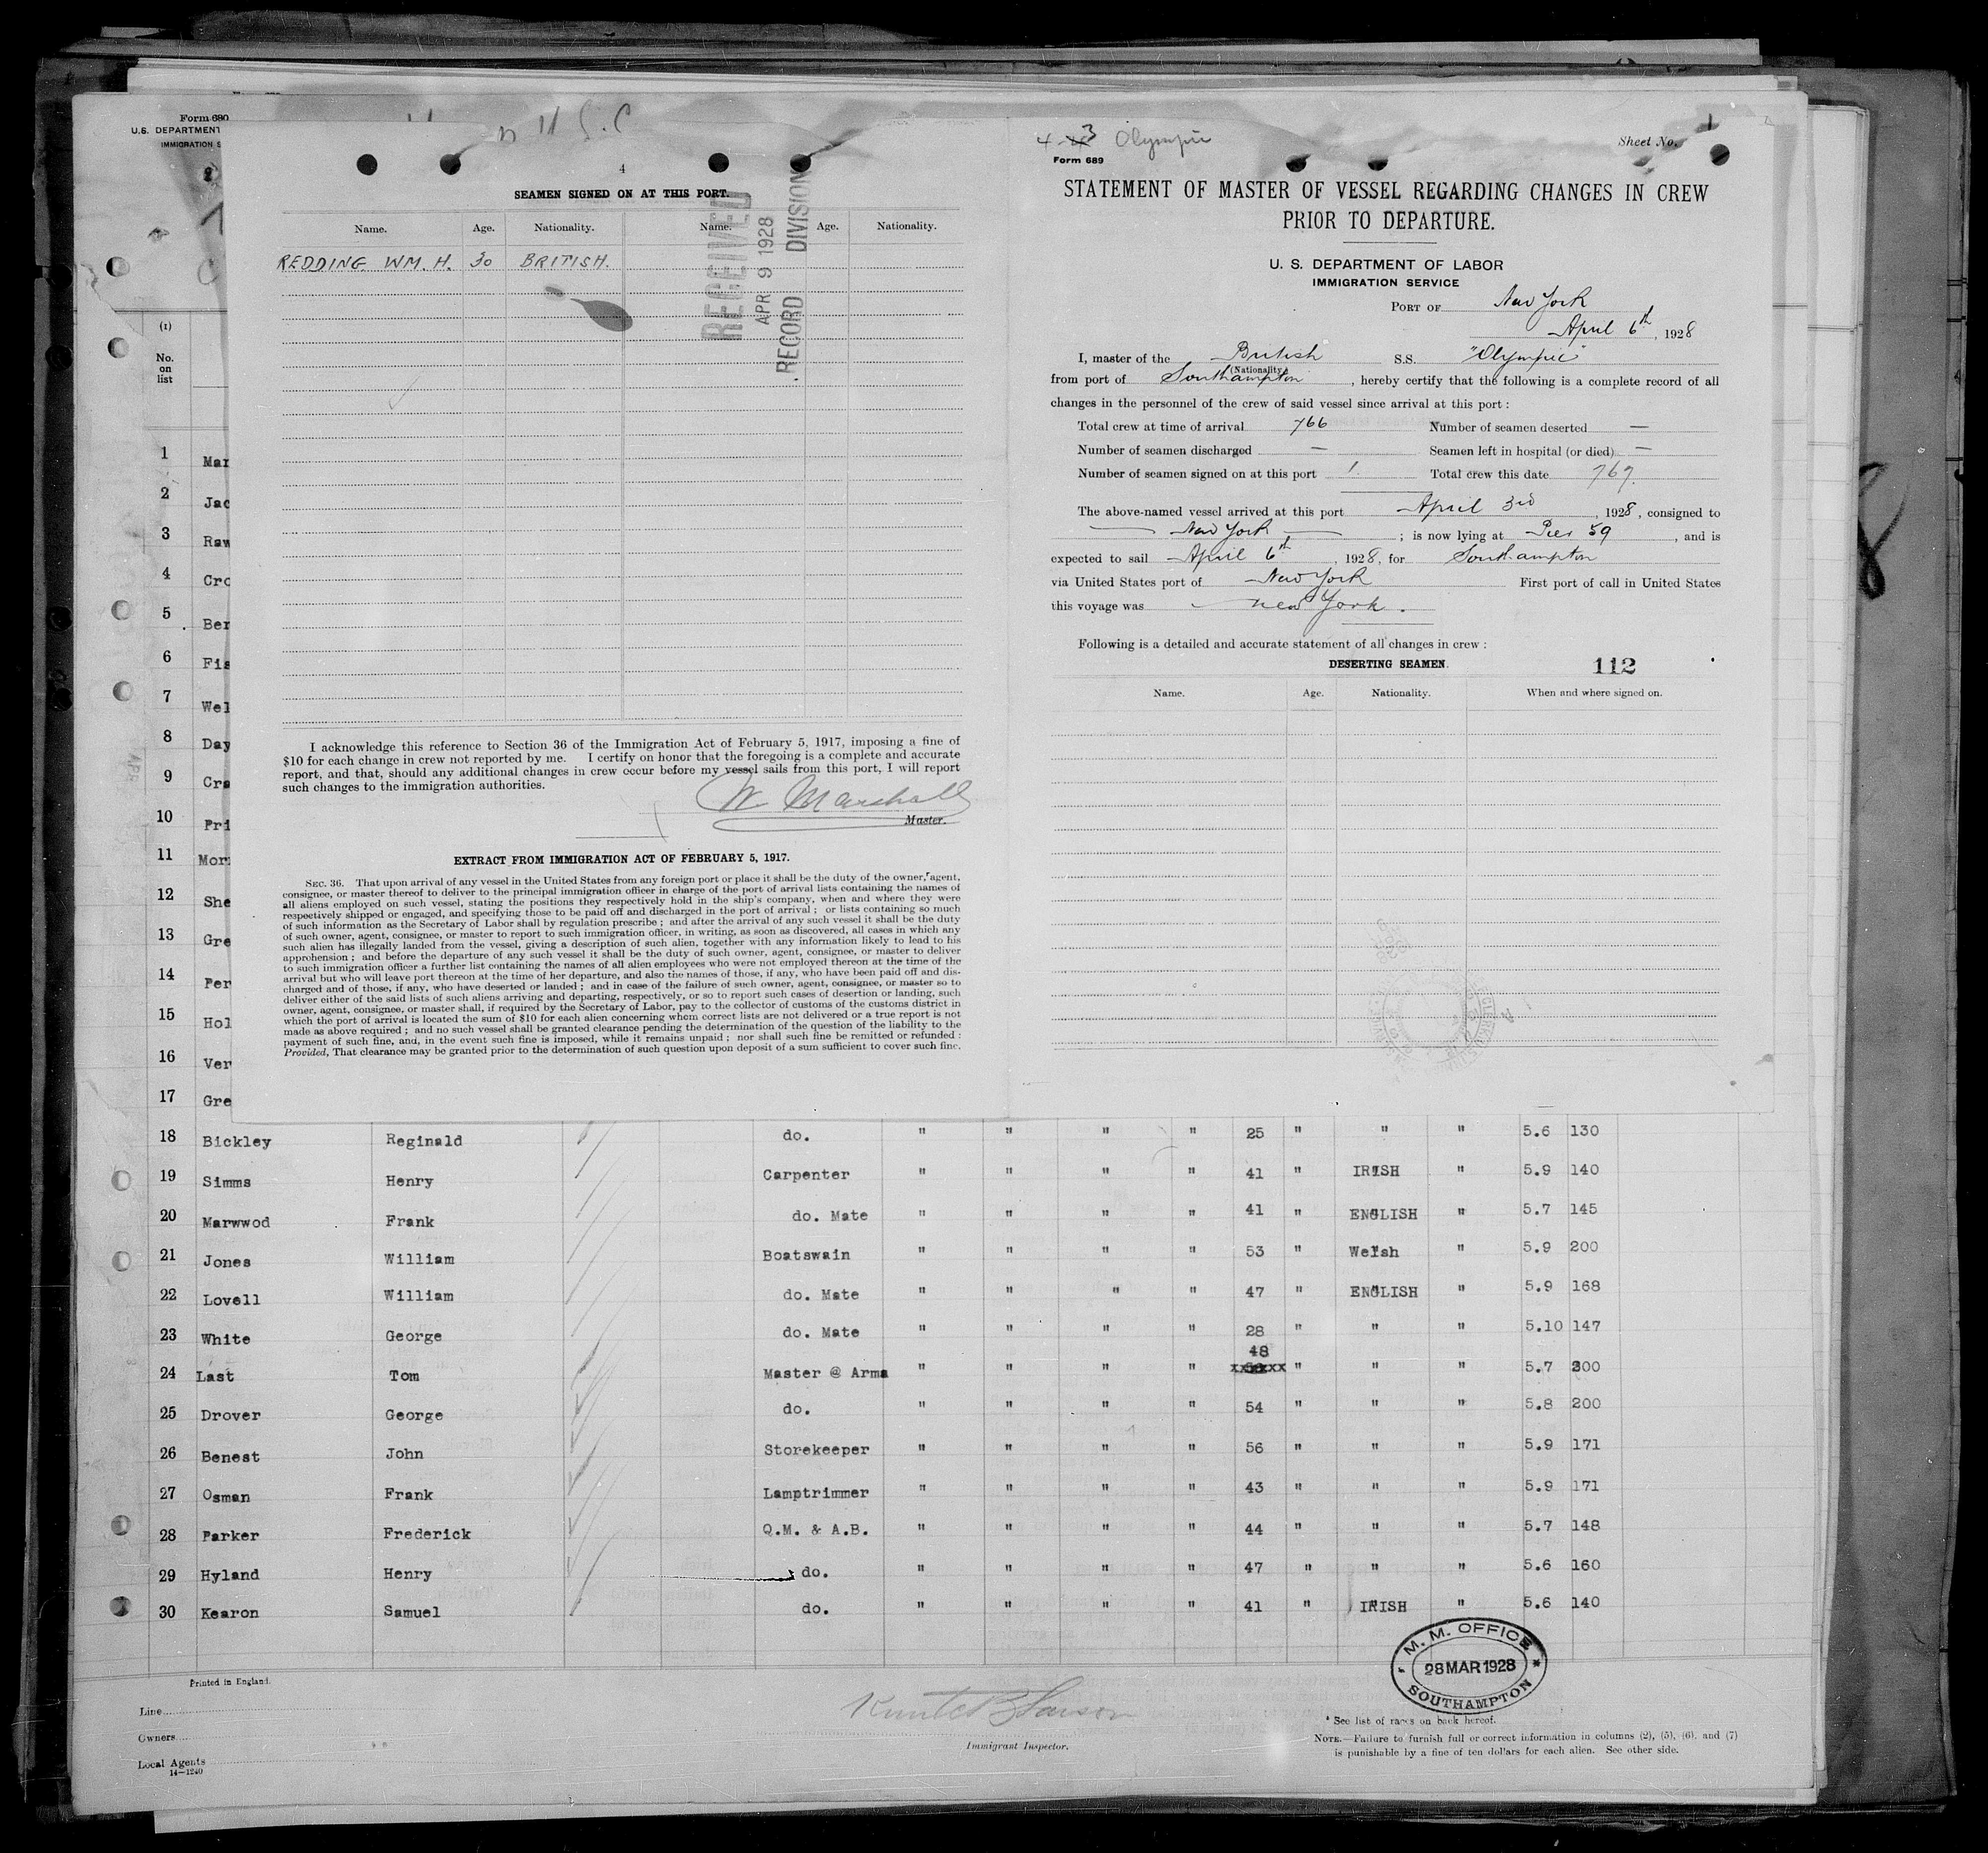 Form 680
U.S. DEPARTMENT
IMMIGRATION S
(1)
No.
on
list
4
SEAMEN SIGNED ON AT THIS PORT.
Name. Age. Nationality. Name. Age. Nationality.
REDDING WM. H. 30 BRITISH.
RECEIVED
APR 9 1928
RECORD DIVISION
I acknowledge this reference to Section 36 of the Immigration Act of February 5, 1917, imposing a fine of
$10 for each change in crew not reported by me. I certify on honor that the foregoing is a complete and accurate
report, and that, should any additional changes in crew occur before my vessel sails from this port, I will report
such changes to the immigration authorities.
W Marshall
Master.
EXTRACT FROM IMMIGRATION ACT OF FEBRUARY 5, 1917.
SEC. 36. That upon arrival of any vessel in the United States from any foreign port or place it shall be the duty of the owner, agent,
consignee, or master thereof to deliver to the principal immigration officer in charge of the port of arrival lists containing the names of
all aliens employed on such vessel, stating the positions they respectively hold in the ship's company, when and where they were
respectively shipped or engaged, and specifying those to be paid off and discharged in the port of arrival ; or lists containing so much
of such information as the Secretary of Labor shall by regulation prescribe ; and after the arrival of any such vessel it shall be the duty
of such owner, agent, consignee, or master to report to such immigration officer, in writing, as soon as discovered, all cases in which any
such alien has illegally landed from the vessel, giving a description of such alien, together with any information likely to lead to his
apprehension ; and before the departure of any such vessel it shall be the duty of such owner, agent, consignee, or master to deliver
to such immigration officer a further list containing the names of all alien employees who were not employed thereon at the time of the
arrival but who will leave port thereon at the time of her departure, and also the names of those, if any, who have been paid off and dis-
charged and of those, if any, who have deserted or landed ; and in case of the failure of such owner, agent, consignee, or master so to
deliver either of the said lists of such aliens arriving and departing, respectively, or so to report such cases of desertion or landing, such
owner, agent, consignee, or master shall, if required by the Secretary of Labor, pay to the collector of customs of the customs district in
which the port of arrival is located the sum of $10 for each alien concerning whom correct lists are not delivered or a true report is not
made as above required ; and no such vessel shall be granted clearance pending the determination of the question of the liability to the
payment of such fine, and, in the event such fine is imposed, while it remains unpaid ; nor shall such fine be remitted or refunded :
Provided, That clearance may be granted prior to the determination of such question upon deposit of a sum sufficient to cover such fine.
4-3 Olympic
Form 689
Sheet No. 1
STATEMENT OF MASTER OF VESSEL REGARDING CHANGES IN CREW
PRIOR TO DEPARTURE.
U. S. DEPARTMENT OF LABOR
IMMIGRATION SERVICE
PORT OF New York
April 6th, 1928
I, master of the British S.S. "Olympic"
(Nationality)
from port of Southampton, hereby certify that the following is a complete record of all
changes in the personnel of the crew of said vessel since arrival at this port :
Total crew at time of arrival 766 Number of seamen deserted —
Number of seamen discharged — Seamen left in hospital (or died) —
Number of seamen signed on at this port 1. Total crew this date 767.
The above-named vessel arrived at this port April 3rd, 1928, consigned to
New York ; is now lying at Pier 59, and is
expected to sail April 6th, 1928, for Southampton
via United States port of New York First port of call in United States
this voyage was New York.
Following is a detailed and accurate statement of all changes in crew :
DESERTING SEAMEN. 112
Name. Age. Nationality. When and where signed on.
1 Mar
2 Jac
3 Raw
4 Cro
5 Ber
6 Fis
7 Wel
8 Day
9 Cra
10 Pri
11 Mor
12 She
13 Gre
14 Per
15 Hol
16 Ver
17 Gre
18 Bickley Reginald do. " " " " 25 " " " 5.6 130
19 Simms Henry Carpenter " " " " 41 " IRISH " 5.9 140
20 Marwwod Frank do. Mate " " " " 41 " ENGLISH " 5.7 145
21 Jones William Boatswain " " " " 53 " Welsh " 5.9 200
22 Lovell William do. Mate " " " " 47 " ENGLISH " 5.9 168
23 White George do. Mate " " " " 28 " " " 5.10 147
24 Last Tom Master @ Arms " " " " 48 xxxxxx " " " 5.7 200
25 Drover George do. " " " " 54 " " " 5.8 200
26 Benest John Storekeeper " " " " 56 " " " 5.9 171
27 Osman Frank Lamptrimmer " " " " 43 " " " 5.9 171
28 Parker Frederick Q.M. & A.B. " " " " 44 " " " 5.7 148
29 Hyland Henry do. " " " " 47 " " " 5.6 160
30 Kearon Samuel do. " " " " 41 " IRISH " 5.6 140
M. M. OFFICE
28 MAR 1928
SOUTHAMPTON
Printed in England.
Line
Owners
Local Agents
14—1240
Immigrant Inspector.
* See list of races on back hereof.
NOTE.—Failure to furnish full or correct information in columns (2), (5), (6), and (7)
is punishable by a fine of ten dollars for each alien. See other side.